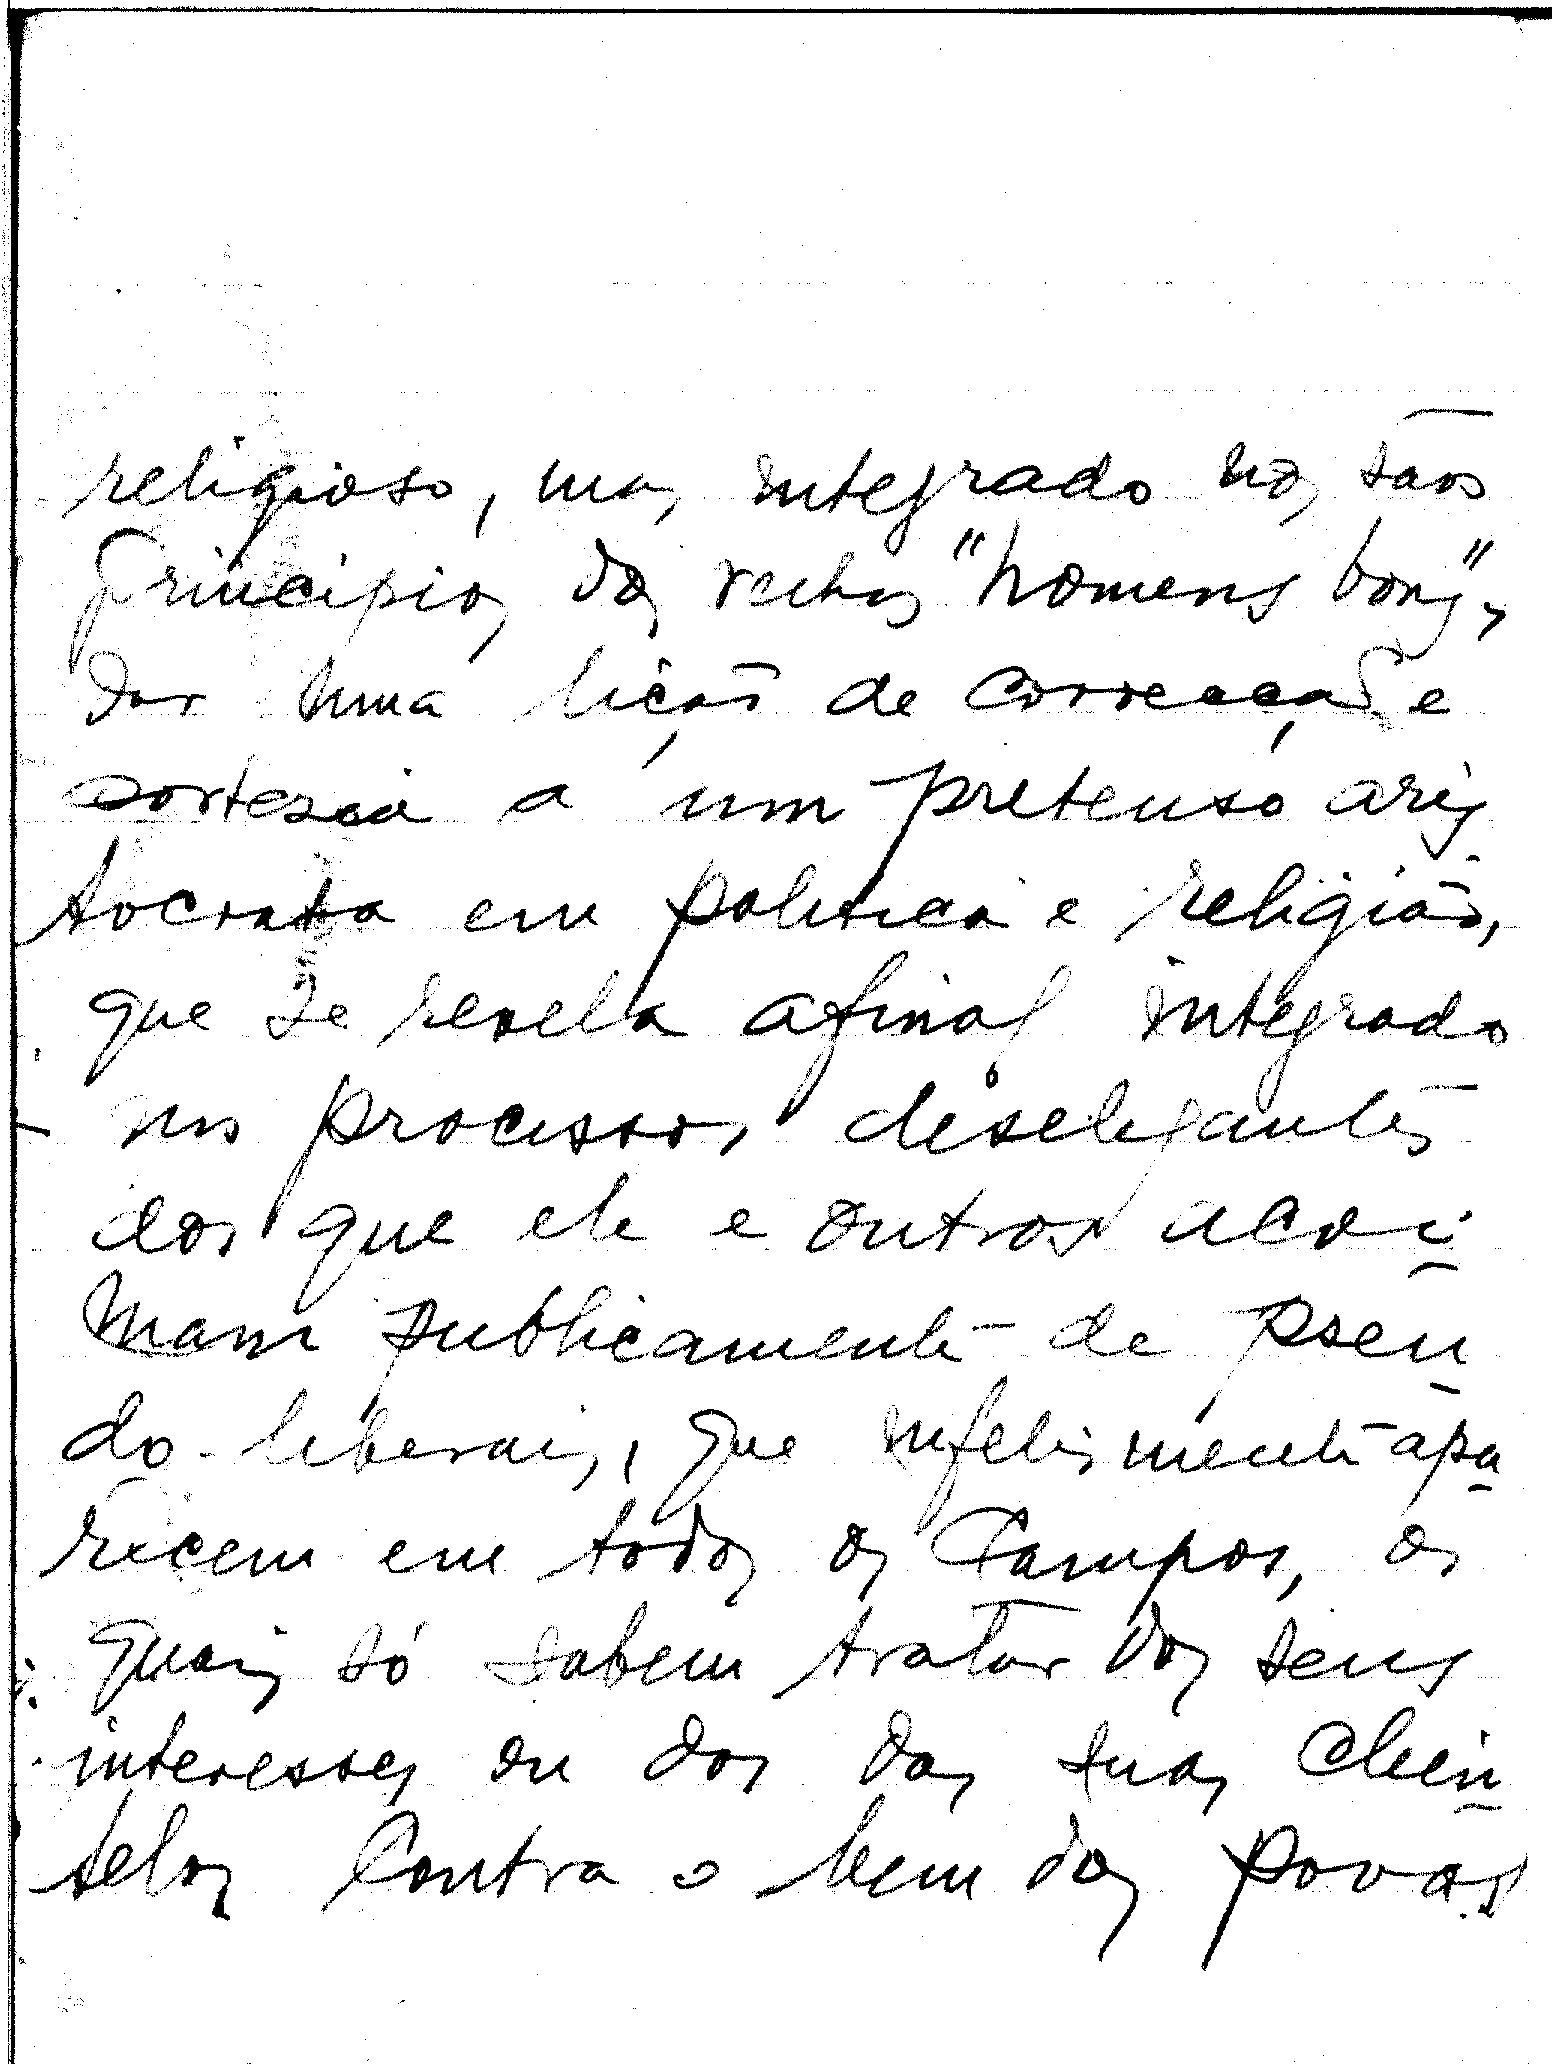 religioso, mas integrado nos sãos
princípios dos velhos "homens bons",
dar uma lição de correcção e
cortesia a um pretenso aris
tocrata em politica e religião,
que se revela afinal integrado
nos processos deselegantes
dos que ele e outros acoi
mam publicamente de pseu
do-liberais, que infelismente apa
recem em todos os Campos, os
quais só sabem tratar dos seus
interesses ou dos das suas clien
telas contra o bem dos povos